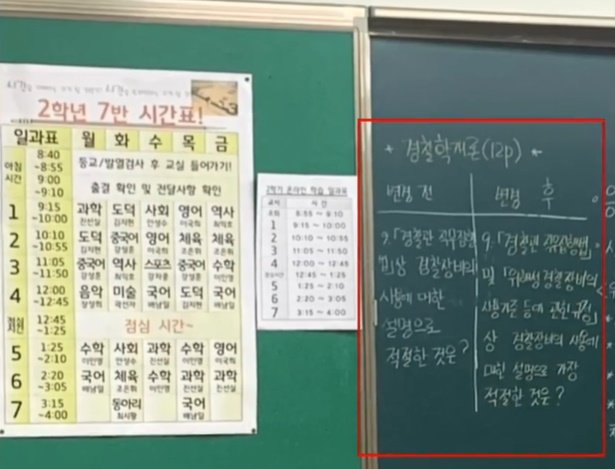 2학년 7반 시간표!
일과표 월 화 수 목 금
아침시간 8:40 ~8:55 등교/발열검사 후 교실 들어가기!
9:00 ~9:10 출결 확인 및 전달사항 확인
1 9:15 ~10:00 과학 도덕 사회 영어 역사
2 10:10 ~10:55 도덕 중국어 영어 체육 체육
3 11:05 ~11:50 중국어 역사 스포츠 중국어 수학
4 12:00 ~12:45 음악 미술 국어 도덕 국어
12:45 ~1:25 점심 시간~
5 1:25 ~2:10 수학 사회 과학 수학 영어
6 2:20 ~3:05 국어 체육 수학 과학 과학
7 3:15 ~4:00 동아리 국어
2학기 온라인 학습 일과표
교시 시간
조회 8:55 ~ 9:10
1 9:15 ~ 10:00
2 10:10 ~ 10:55
3 11:05 ~ 11:50
4 12:00 ~ 12:45
점심시간 12:45 ~ 1:25
5 1:25 ~ 2:10
6 2:20 ~ 3:05
7 3:15 ~ 4:00
* 경찰학개론(12p) *
변경 전
9. 「경찰관 직무집행법」상 경찰장비의
사용에 대한
설명으로
적절한 것은?
변경 후
9. 「경찰관 직무집행법」
및 「위해성 경찰장비의
사용기준 등에 관한 규정」
상 경찰장비의 사용에
대한 설명으로 가장
적절한 것은?